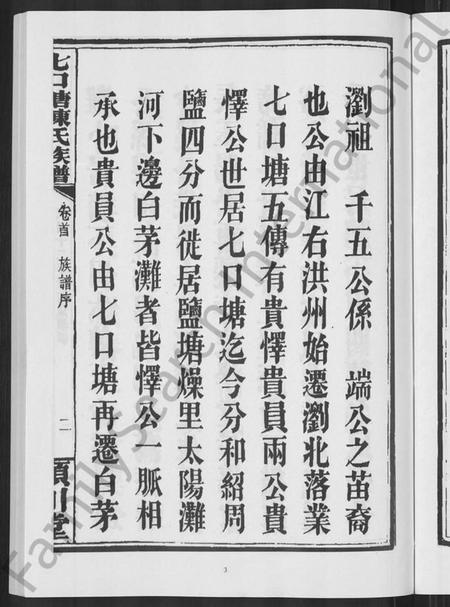 瀏祖　千五公係　端公之苗裔
也公由江右洪州始遷瀏北落業
七口塘五傳有貴懌貴員兩公貴
懌公世居七口塘迄今分和紹周
鹽四分而徙居鹽塘燥里太陽灘
河下邊白茅灘者皆懌公一脈相
承也貴員公由七口塘再遷白茅
七口塘陳氏族譜
卷首　族譜序
二
潁川堂
3
FamilySearch International